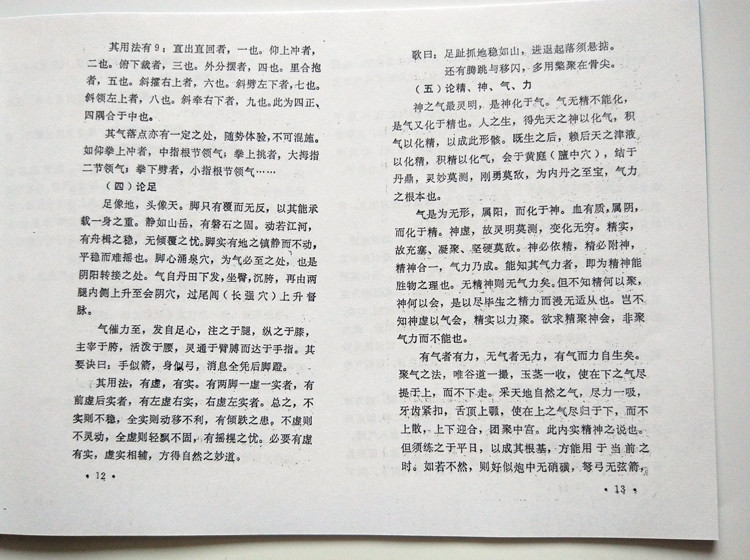 其用法有9：直出直回者，一也。仰上冲者，
二也。俯下裁者，三也。外分摆者，四也。里合抱
者，五也。斜擢右上者，六也。斜劈左下者，七也。
斜领左上者，八也。斜牵右下者，九也。此为四正、
四隅合于中也。
其气落点亦有一定之处，随势体验，不可混施。
如仰拳上冲者，中指根节领气；拳上挑者，大拇指
二节领气；拳下劈者，小指根节领气……
（四）论足
足像地，头像天。脚只有覆而无反，以其能承
载一身之重。静如山岳，有磐石之固。动若江河，
有舟楫之稳，无倾覆之忧。脚实有地之镇静而不动，
平稳而难摇也。脚心涌泉穴，为气必至之处，也是
阴阳转接之处。气自丹田下发，坐臀，沉胯，再由两
腿内侧上升至会阴穴，过尾闾（长强穴）上升督
脉。
气催力至，发自足心，注之于腿，纵之于膝，
主宰于胯，活泼于腰，灵通于臂膊而达于手指。其
要诀曰：手似箭，身似弓，消息全凭后脚蹬。
其用法，有虚，有实。有两脚一虚一实者，有
前虚后实者，有左虚右实，右虚左实者。总之，不
实则不稳，全实则动移不利，有倾跌之患。不虚则
不灵动，全虚则轻飘不固，有摇棍之忧。必要有虚
有实，虚实相辅，方得自然之妙道。
· 12 ·
歌曰：足趾抓地稳如山，进退起落须悬掂。
还有腾跳与移闪，多用蹩聚在骨尖。
（五）论精、神、气、力
神之气最灵明，是神化于气。气无精不能化，
是气又化于精也。人之生，得先天之神以化气，积
气以化精，以成此形骸。既生之后，赖后天之津液
以化精，积精以化气，会于黄庭（膻中穴），结于
丹鼎，灵妙莫测，刚勇莫敌，为内丹之至宝，气力
之根本也。
气是为无形，属阳，而化于神。血有质，属阴，
而化于精。神虚，故灵明莫测，变化无穷。精实，
故充塞、凝聚、坚硬莫敌。神必依精，精必附神，
精神合一，气力乃成。能知其气力者，即为精神能
胜物之理也。无精神则无气力矣。但不知精何以聚，
神何以会，是以尽毕生之精力而漫无适从也。岂不
知神虚以气会，精实以力聚。欲求精聚神会，非聚
气力而不能也。
有气者有力，无气者无力，有气而力自生矣。
聚气之法，唯谷道一撮，玉茎一收，使在下之气尽
提于上，而不下走。采天地自然之气，尽力一吸，
牙齿紧扣，舌顶上颚，使在上之气尽归于下，而不
上散，上下迎合，团聚中宫。此内实精神之说也。
但须练之于平日，以成其根基，方能用于当前之
时。如若不然，则好似炮中无硝磺，弩弓无弦箭，
· 13 ·